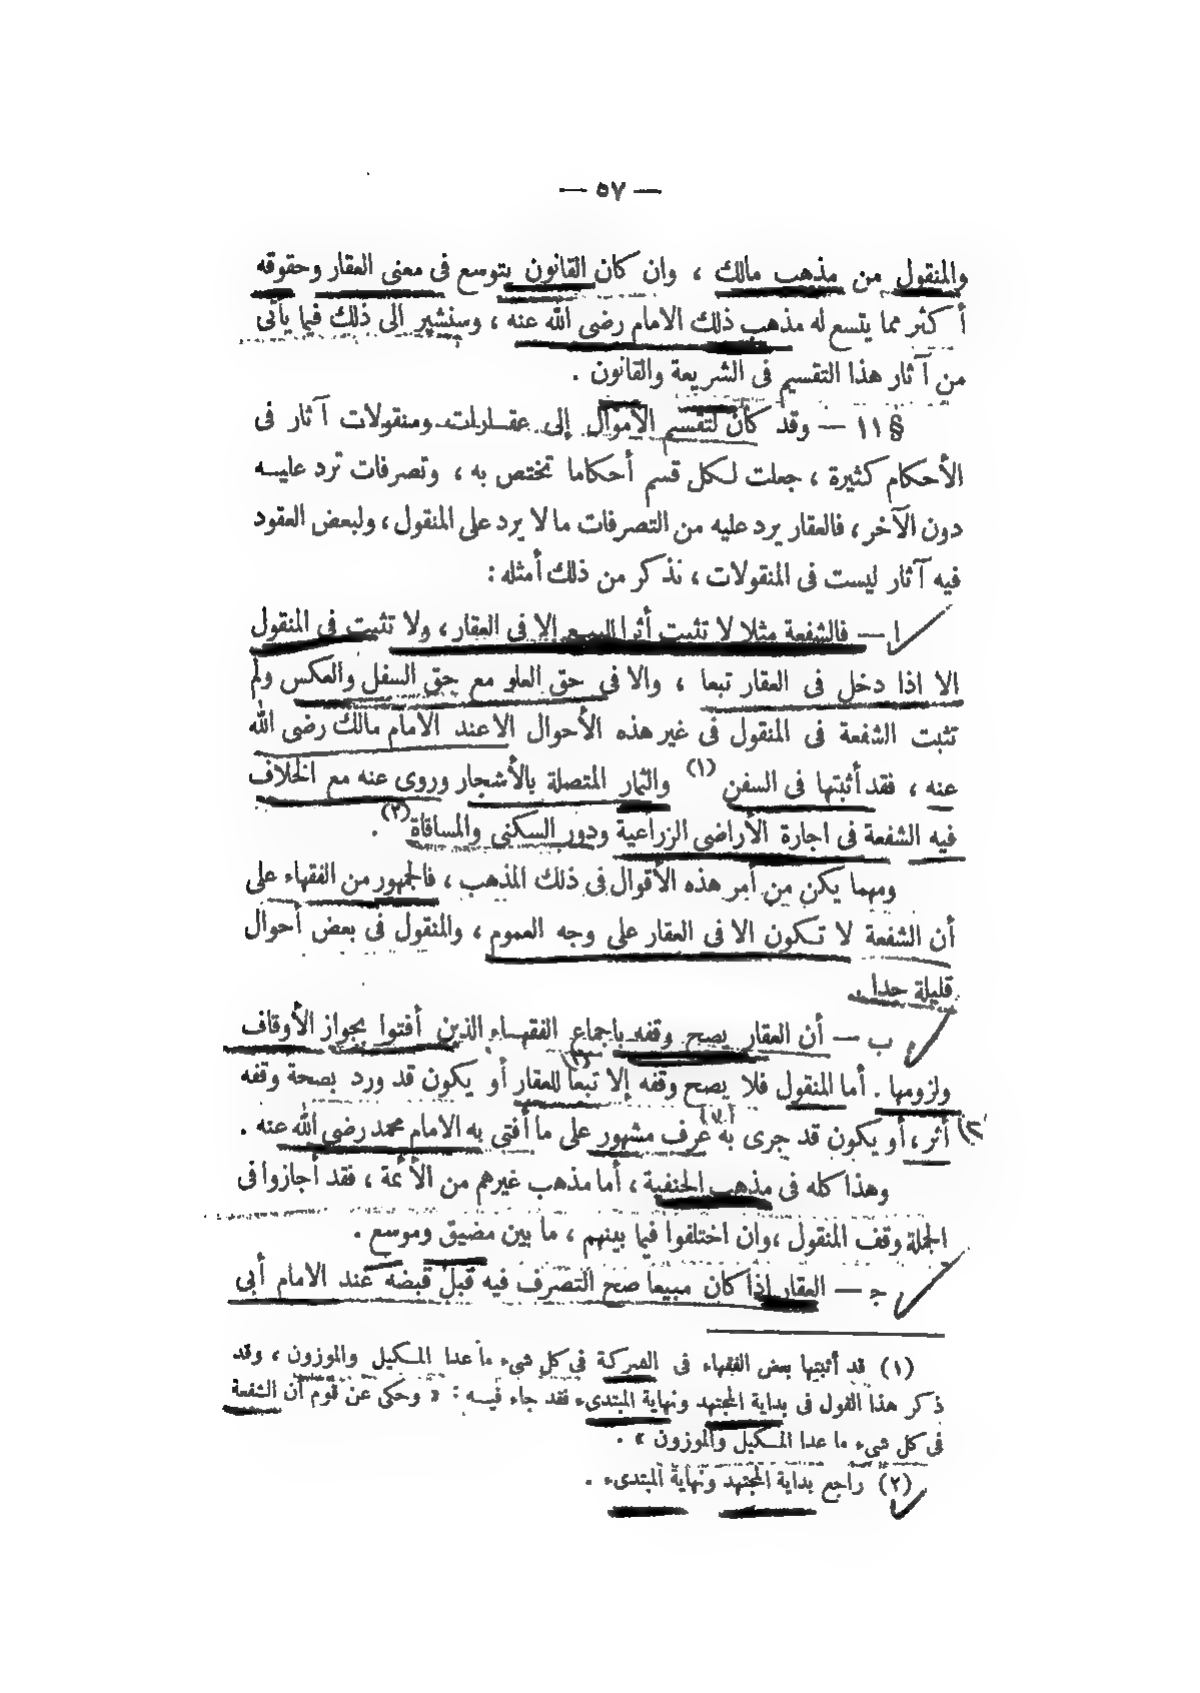 — ٥٧ —
والمنقول من مذهب مالك ، وان كان القانون يتوسع فى معنى العقار وحقوقه
أكثر مما يتسع له مذهب ذلك الامام رضى الله عنه ، وسنشير الى ذلك فيما يأتى
من آثار هذا التقسيم فى الشريعة والقانون .
§ ١١ — وقد كان لتقسيم الأموال إلى عقارات ومنقولات آثار فى
الأحكام كثيرة ، جعلت لكل قسم أحكاما تختص به ، وتصرفات ترد عليه
دون الآخر ، فالعقار يرد عليه من التصرفات ما لا يرد على المنقول ، ولبعض العقود
فيه آثار ليست فى المنقولات ، نذكر من ذلك أمثله :
ا — فالشفعة مثلا لا تثبت أثرا للبيع إلا فى العقار ، ولا تثبت فى المنقول
الا اذا دخل فى العقار تبعا ، والا فى حق العلو مع حق السفل والعكس ولم
تثبت الشفعة فى المنقول فى غير هذه الأحوال الا عند الامام مالك رضى الله
عنه ، فقد أثبتها فى السفن (١) والثمار المتصلة بالأشجار وروى عنه مع الخلاف
فيه الشفعة فى اجارة الأراضى الزراعية ودور السكنى والمساقاة (٢) .
ومهما يكن من أمر هذه الأقوال فى ذلك المذهب ، فالجمهور من الفقهاء على
أن الشفعة لا تكون الا فى العقار على وجه العموم ، والمنقول فى بعض أحوال
قليلة جدا .
ب — أن العقار يصح وقفه باجماع الفقهاء الذين أفتوا بجواز الأوقاف
ولزومها . أما المنقول فلا يصح وقفه إلا تبعا للعقار أو يكون قد ورد بصحة وقفه
أثر ، أو يكون قد جرى به عرف مشهور على ما أفتى به الامام محمد رضى الله عنه .
وهذا كله فى مذهب الحنفية ، أما مذهب غيرهم من الأئمة ، فقد أجازوا فى
الجملة وقف المنقول ، وان اختلفوا فيما بينهم ، ما بين مضيق وموسع .
ج — العقار إذا كان مبيعا صح التصرف فيه قبل قبضه عند الامام أبى
(١) قد أثبتها بعض الفقهاء فى الشركة فى كل شىء ما عدا المكيل والموزون ، وقد
ذكر هذا القول فى بداية المجتهد ونهاية المبتدىء فقد جاء فيه : « وحكى عن قوم أن الشفعة
فى كل شىء ما عدا المكيل والموزون » .
(٢) راجع بداية المجتهد ونهاية المبتدىء .